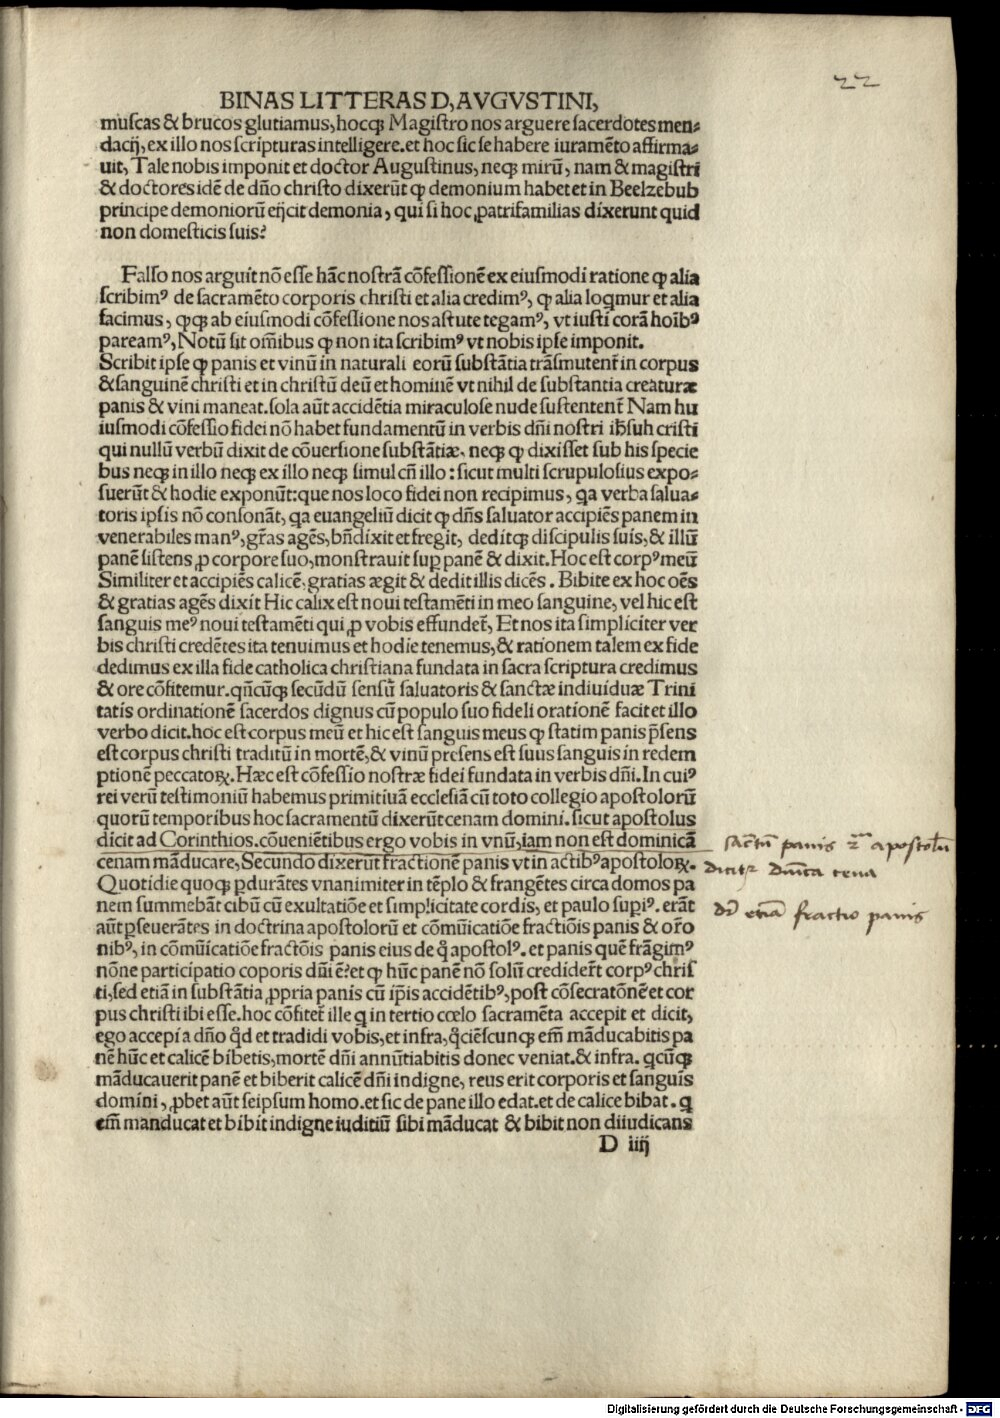 22
BINAS LITTERAS D, AVGVSTINI,
muscas & brucos glutiamus, hocqꝫ Magistro nos arguere sacerdotes men⸗
dacij, ex illo nos scripturas intelligere. et hoc sic se habere iuramēto affirma⸗
uit, Tale nobis imponit et doctor Augustinus, neqꝫ mirū, nam & magistri
& doctores idē de dño christo dixerūt ꝙ demonium habet et in Beelzebub
principe demoniorū eijcit demonia, qui si hoc ꝓatrifamilias dixerunt quid
non domesticis suis?
Falso nos arguit nō esse hāc nostrā cōfessionē ex eiusmodi ratione ꝙ alia
scribimꝰ de sacramēto corporis christi et alia credimꝰ, ꝙ alia loqmur et alia
facimus, ꝙqꝫ ab eiusmodi cōfessione nos astute tegamꝰ, vt iusti corā hoībꝰ
pareamꝰ, Notū sit om̄ibus ꝙ non ita scribimꝰ vt nobis ipse imponit.
Scribit ipse ꝙ panis et vinū in naturali eorū substātia trāsmutent̄ in corpus
& sanguinē christi et in christū deū et hominē vt nihil de substantia creaturæ
panis & vini maneat. sola aūt accidētia miraculose nude sustentent̄ Nam hu
iusmodi cōfessio fidei nō habet fundamentū in verbis dn̄i nostri ih̄suh cristi
qui nullū verbū dixit de cōuersione substātiæ, neqꝫ ꝙ dixisset sub his specie
bus neqꝫ in illo neqꝫ ex illo neqꝫ simul cū illo : sicut multi scrupulosius expo⸗
suerūt & hodie exponūt: que nos loco fidei non recipimus, qa verba salua⸗
toris ipsis nō consonāt, qa euangeliū dicit ꝙ dn̄s saluator accipiēs panem in
venerabiles manꝰ, gr̄as agēs, bn̄dixit et fregit, deditqꝫ discipulis suis, & illū
panē sistens ꝓ corpore suo, monstrauit suꝑ panē & dixit. Hoc est corpꝰ meū
Similiter et accipiēs calicē, gratias ægit & dedit illis dicēs . Bibite ex hoc oēs
& gratias agēs dixit Hic calix est noui testamēti in meo sanguine, vel hic est
sanguis meꝰ noui testamēti qui ꝓ vobis effundet̄, Et nos ita simpliciter ver
bis christi credētes ita tenuimus et hodie tenemus, & rationem talem ex fide
dedimus ex illa fide catholica christiana fundata in sacra scriptura credimus
& ore cōfitemur. qn̄cūqꝫ secūdū sensū saluatoris & sanctæ indiuiduæ Trini
tatis ordinationē sacerdos dignus cū populo suo fideli orationē facit et illo
verbo dicit. hoc est corpus meū et hic est sanguis meus ꝙ statim panis p̄sens
est corpus christi traditū in mortē, & vinū presens est suus sanguis in redem
ptionē peccatoꝝ. Hæc est cōfessio nostræ fidei fundata in verbis dn̄i. In cuiꝰ
rei verū testimoniū habemus primitiuā ecclesiā cū toto collegio apostolorū
quorū temporibus hoc sacramentū dixerūt cenam domini. sicut apostolus
dicit ad Corinthios. cōueniētibus ergo vobis in vnū, iam non est dominicā
cenam māducare, Secundo dixerūt fractionē panis vt in actibꝰ apostoloꝝ.
Quotidie quoqꝫ ꝑdurātes vnanimiter in tēplo & frangētes circa domos pa
nem summebāt cibū cū exultatiōe et simplicitate cordis, et paulo supiꝰ. erāt
aūt ꝑseuerātes in doctrina apostolorū et cōmūicatiōe fractiōis panis & or̄o
nibꝰ, in cōmūicatiōe fractōis panis eius de q̄ apostolꝰ. et panis quē frāgimꝰ
nōne participatio coporis dn̄i ē? et ꝙ hūc panē nō solū credidert̄ corpꝰ chris
ti, sed etiā in substātia ꝓpria panis cū ip̄is accidētibꝰ, post cōsecratōnē et cor
pus christi ibi esse. hoc cōfitet̄ ille q in tertio cœlo sacramēta accepit et dicit,
ego accepi a dn̄o q̄d et tradidi vobis, et infra, q̄ciēscunqꝫ em̄ māducabitis pa
nē hūc et calicē bibetis, mortē dn̄i annūtiabitis donec veniat. & infra. qcūqꝫ
māducauerit panē et biberit calicē dn̄i indigne, reus erit corporis et sanguis
domini, ꝓbet aūt seipsum homo. et sic de pane illo edat. et de calice bibat. q
em̄ manducat et bibit indigne iuditiū sibi māducat & bibit non diiudicans
D iiij
sac̄tū panis apostolū
dicit dn̄ica cena
dr̄ etiā fractio panis
Digitalisierung gefördert durch die Deutsche Forschungsgemeinschaft - DFG